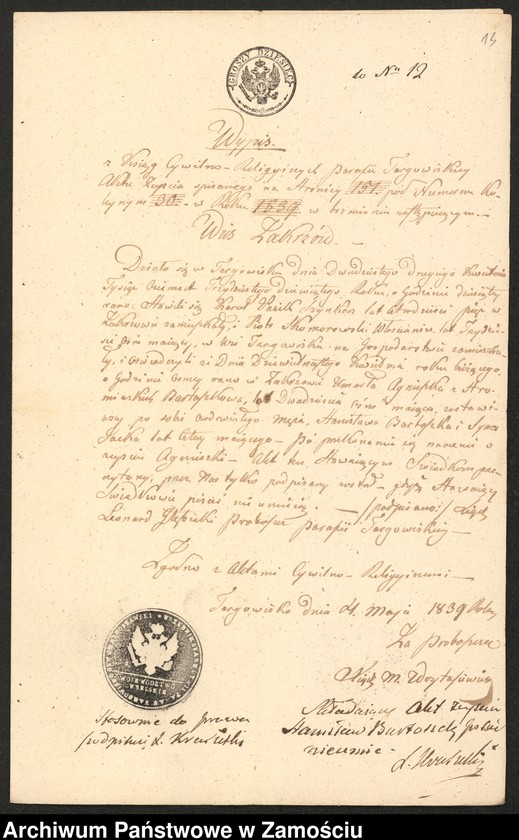 13
GROSZY DZIESIĘĆ
do Nru 12
Wypis.
z Xiąg Cywilno-Religyinych Parafii Targowiskiey
Aktu Zeyścia spisanego na Stronicy 151 pod Numerem Ko-
leynym 30 w Roku 1839 w brzmieniu następuiącym.
Wieś Zakrzów.
Działo się w Targowisku dnia Dwudziestego drugiego Kwietnia
Tysiąc Ośmset Trzydziestego Dziewiątego Roku, o godzinie dziesiątey
rano. Stawili się Karol lat trzydzieści pięć w
Zakrzowie zamieszkały, i Piotr Skomorowski Włościanin, lat
maiący, w Wsi Targowisku na Gospodarstwie zamieszka-
ły, i oświadczyli iż Dnia Dziewiętnastego Kwietnia roku bieżącego,
o Godzinie osmey rano w Zakrzowie Umarła Agnieszka z
Bartoszkowa, lat Dwadzieścia ośm maiąca, zostawi-
wszy po sobie owdowiałego męża, Stanisława Bartoszka i Syna
Jacka lat cztery maiącego. Po przekonaniu się naocznie o
zeyściu Agnieszki Akt ten Stawaiącym Świadkom prze-
czytany, przez Nas tylko podpisany został, gdyż Stawaiący
Świadkowie pisać nie umieią. (podpisano:) Xiądz
Leonard Proboszcz Parafii Targowiskiey
Zgodno z Aktami Cywilno-Religyinemi
Targowisko dnia 4 Maja 1839 Roku
Za Proboszcza
Xiądz M.
Składaiący Akt Zeyścia
Stanisław Bartoszek pisać
nieumie.
Stosownie do prawa
podpisuię
Archiwum Państwowe w Zamościu